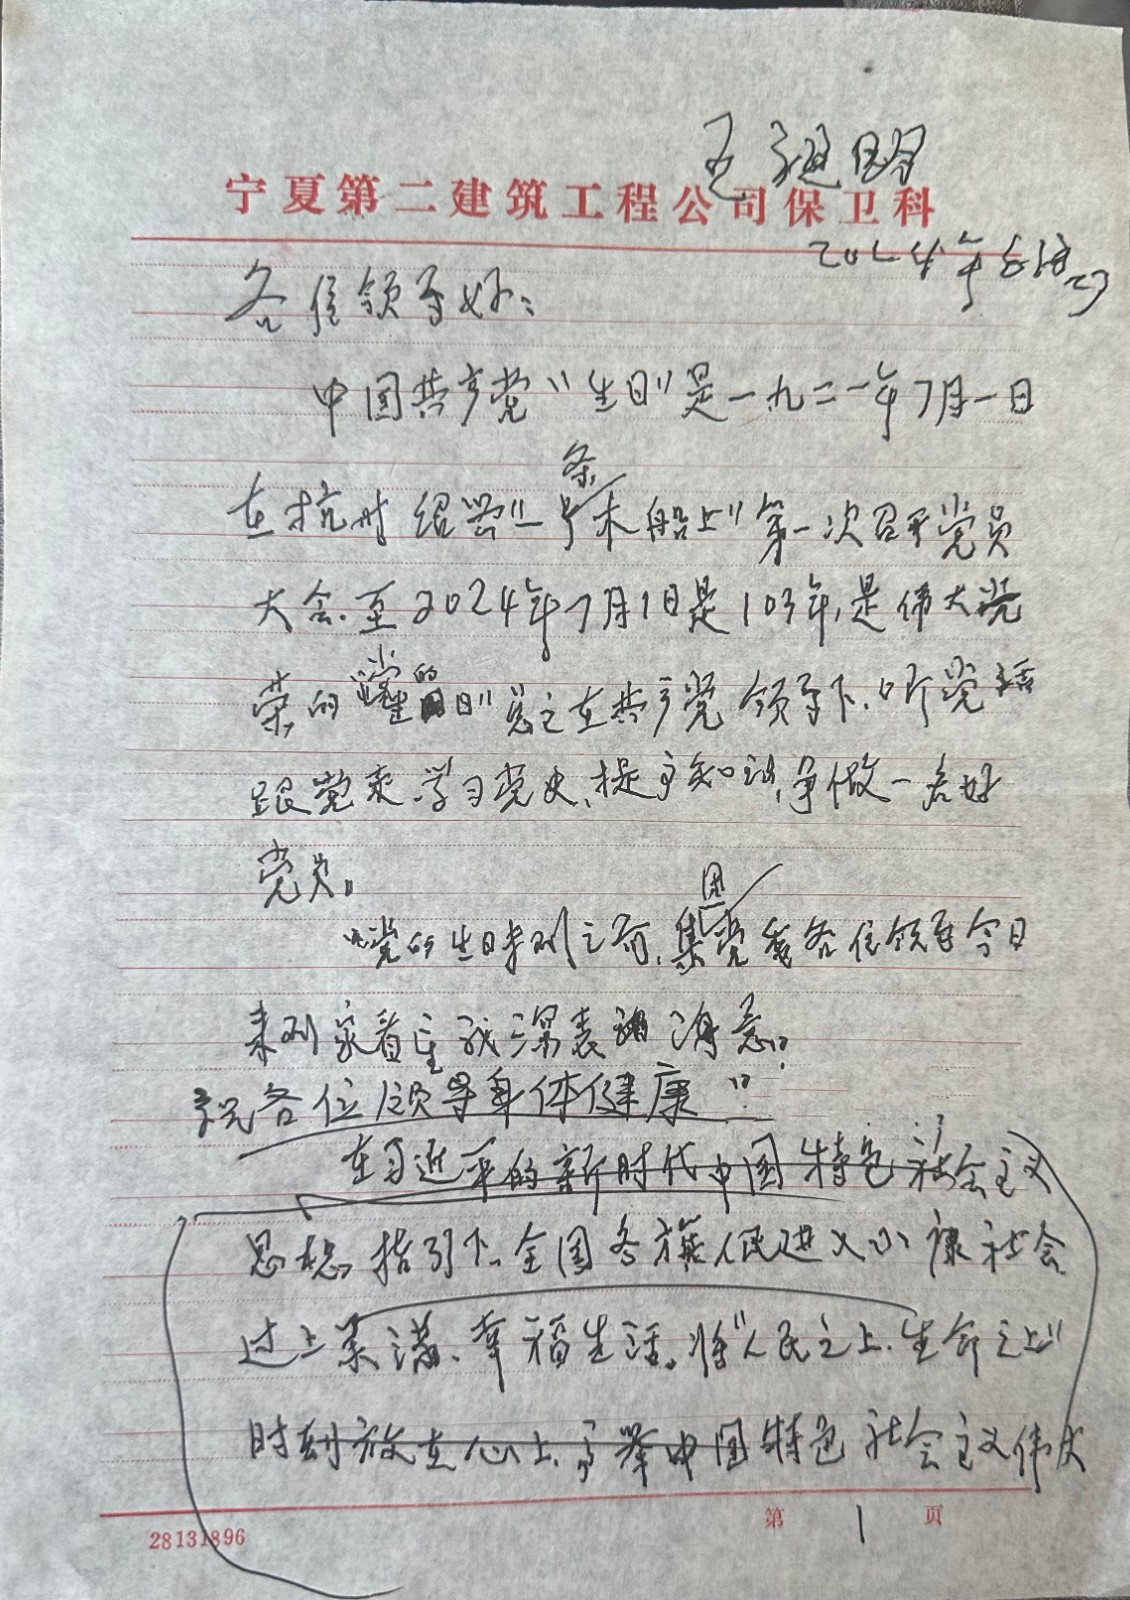 宁夏第二建筑工程公司保卫科
各位领导好:
中国共产党“生日”是一九二一年7月一日
在杭州绍兴“一条木船上”第一次召开党员
大会.至2024年7月1日是103年,是伟大光
荣的 的 日”总之在共产党领导下.听党话
跟党走.学习党史、提高知识,争做一名好
党员。
“党的生日来到之前,集团党委各位领导今日
来到家看望我深表 意”
祝各位领导身体健康”
在习近平的新时代中国特色社会主义
思想指引下.全国各族人民进入小康社会
过上美满、幸福生活。将“人民之上.生命之上”
时刻放在心上.高举中国特色社会主义伟大
28131896
第 1 页